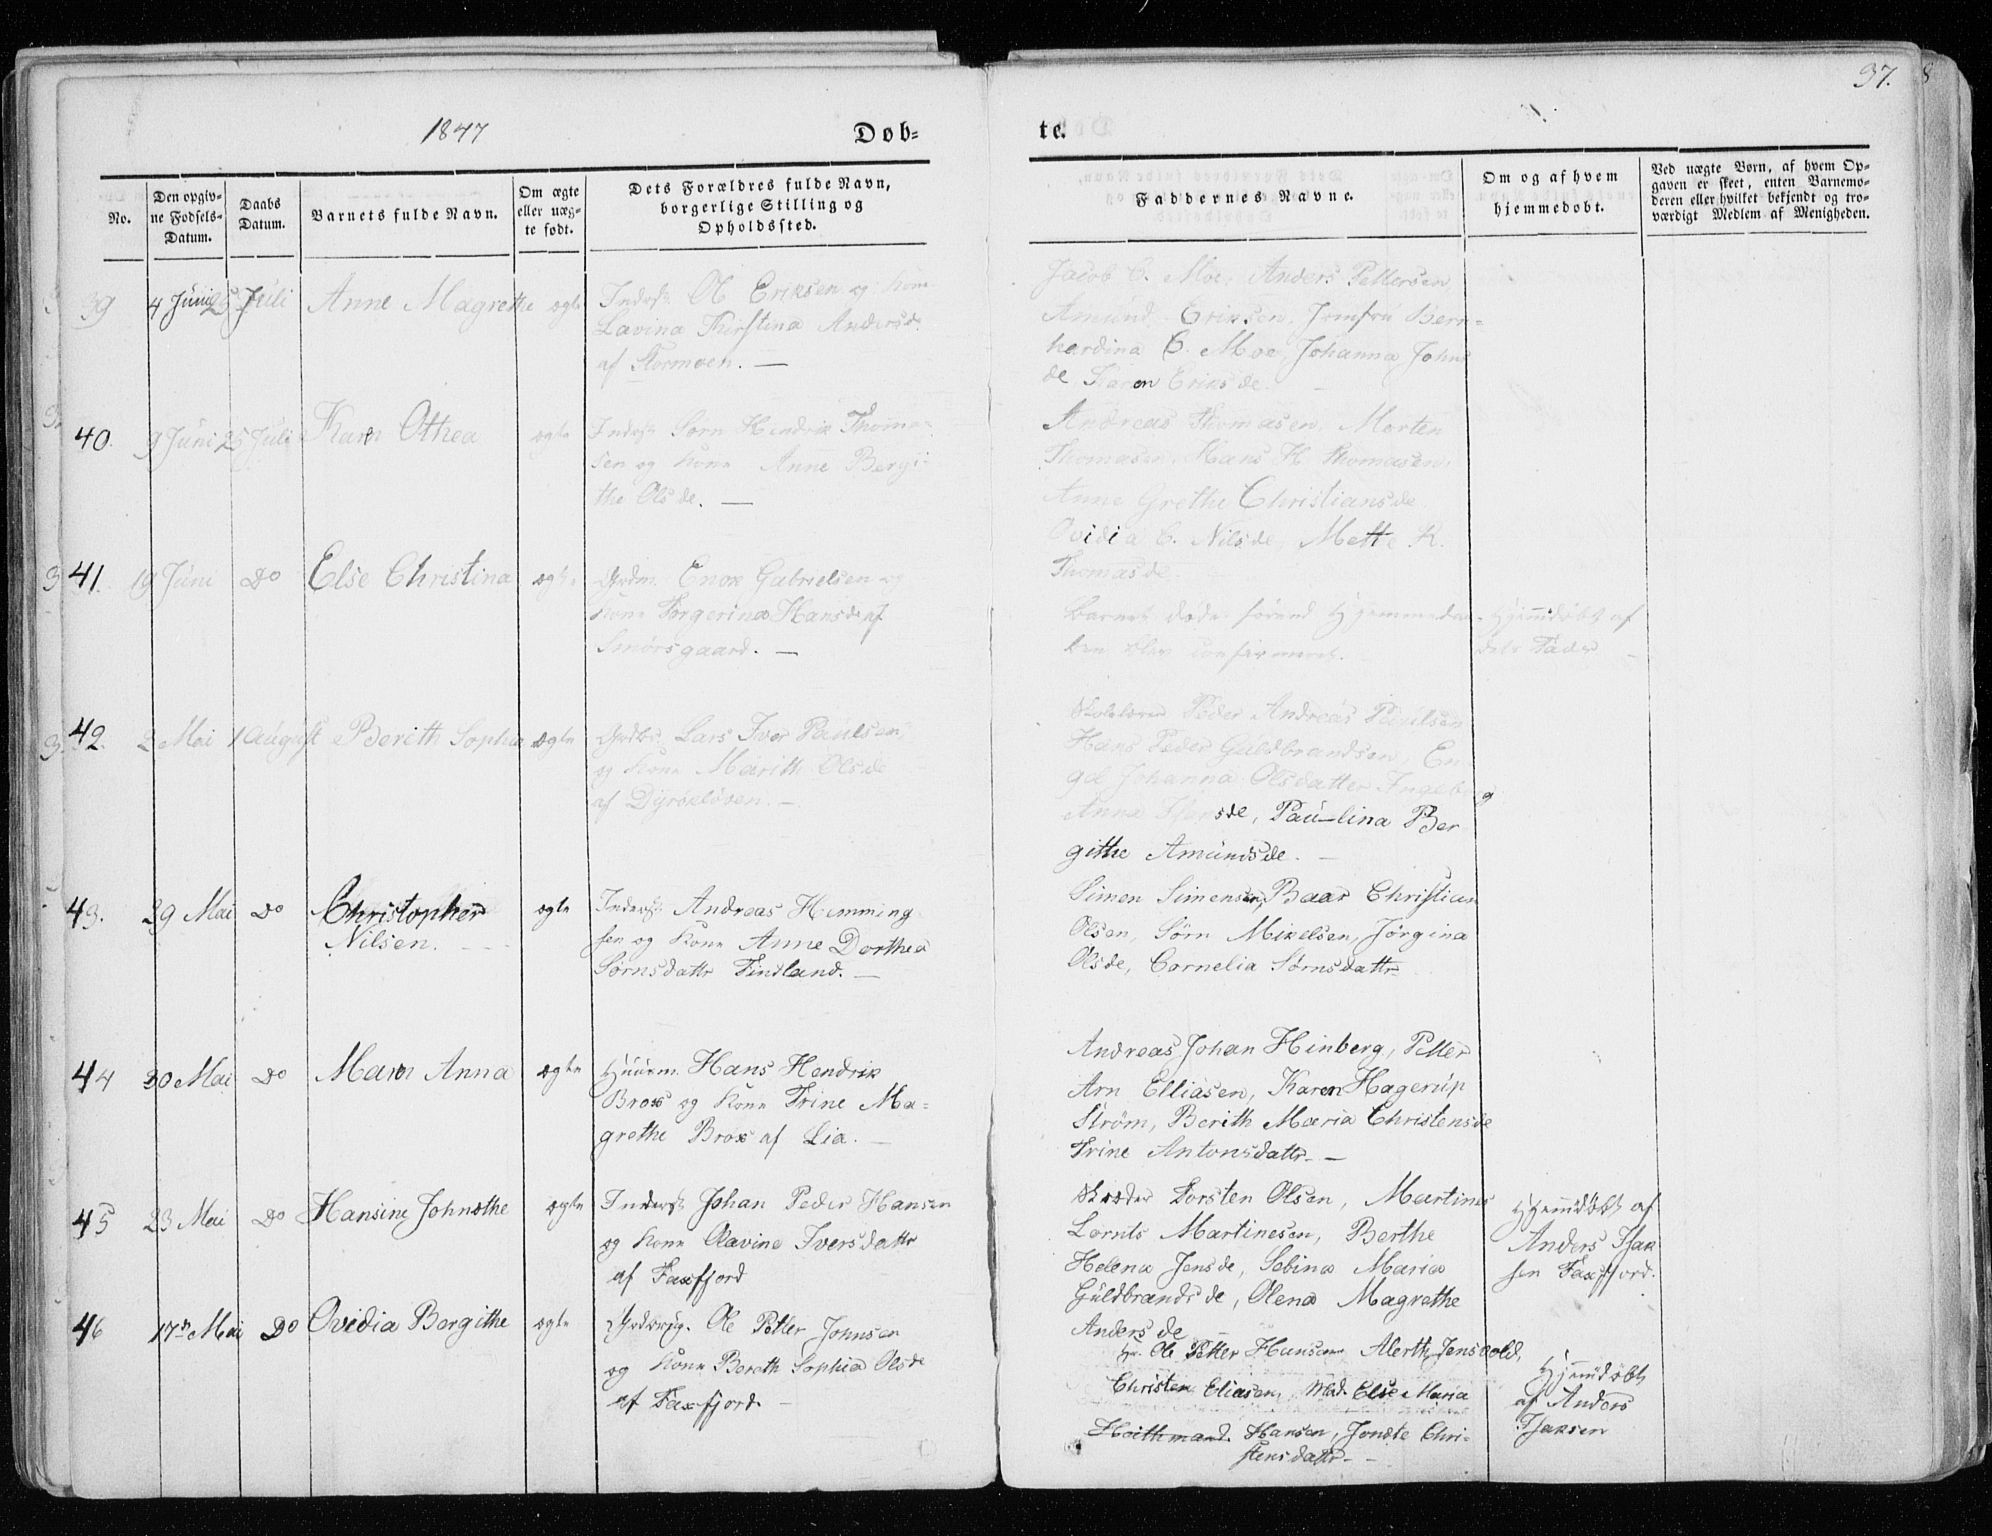 37.
8
1847
Døb-
te.
No.
Den opgiv-
ne Fødsels-
Datum.
Daabs
Datum.
Barnets fulde Navn.
Om ægte
eller uæg-
te født.
Dets Forældres fulde Navn,
borgerlige Stilling og
Opholdssted.
Faddernes Navne.
Om og af hvem
hjemmedøbt.
Ved uægte Børn, af hvem Op-
gaven er skeet, enten Barnemo-
deren eller hvilket bekjendt og tro-
værdigt Medlem af Menigheden.
39 4 Juni 25 Juli Anne Magrethe ægte
Inderst Ol Eriksen og Kone
Lavina Kirstina Andersd.
af Stormoen. —
Jacob C. Moe, Anders Pettersen
Amund Eriksen, Jomfru Bern-
hardina C. Moe, Johanna Johns
de Karen Eriksde. —
40. 9 Juni 25 Juli Karn Othea ægte
Inderst Sørn Hendrik Thoma-
sen og Kone Anne Bergi-
the Olsde. —
Andreas Thomasen, Morten
Thomasen, Hans H. Thomasen,
Anne Grethe Christiansde
Ovidia C. Nilsde, Mette K.
Thomasde
41. 19 Juni Do Else Christina ægte
Grdm. Enok Gabrielsen og
Kone Torgerina Hansde af
Smörsgaard. —
Barnet døde førend Hjemmedaa-
ben blev confirmeret.
Hjemmdøbt af
dets Fader —
42. 2 Mai 1 August Berith Sophia ægte
Grdbr. Lars Iver Paulsen
og Kone Marith Olsde
af Dyröklöven. —
Skolelærer Peder Andreas Paulsen
Hans Peder Guldbrandsen, En
gel Johanna Olsdatter Ingeb g
Anna de, Paulina Ber
githe Amundsde. —
43. 29 Mai Do Christopher
Nilsen.
ægte
Inderst Andreas Hemming
sen og Kone Anne Dorthea
Sörnsdattr Finland. —
Simen Simensen, Baar Christian
Olsen, Sörn Mikelsen, Jörgina
Olsde, Cornelia Sörnsdattr
44 30 Mai Do Maren Anna ægte
Huusm. Hans Hendrik
Brox og Kone Trine Ma-
grethe Brox af Lia. —
Andreas Johan Hinberg, Petter
Arn Elliasen, Karen Hagerup
Ström, Berith Maria Christensde
Trine Antonsdattr. —
45 23 Mai Do Hansine Johnethe ægte
Inderst Johan Peder Hansen
og Kone Olavine Iversdattr
af Faxfjord
Torsten Olsen, Martines
Lornts Martinesen, Berthe
Helena Jensde, Sebina Maria
Guldbrandsde, Olena Magrethe
Andersde
Hjemmdöbt af
Anders Isak
sen Faxfjord.
46 17de Mai Do Ovidia Bergithe ægte
Ole Petter Johnsen
og Kone Bereth Sophia Olsde
af Faxfjord —
Hr. Ole Petter Hansen, Alerth Jensvold,
Christen Eliasen, Mad. Else Maria
Hoithmand Hansen, Jonete Chri-
stensdattr. —
Hjemmdöbt
af Anders
Isaksen